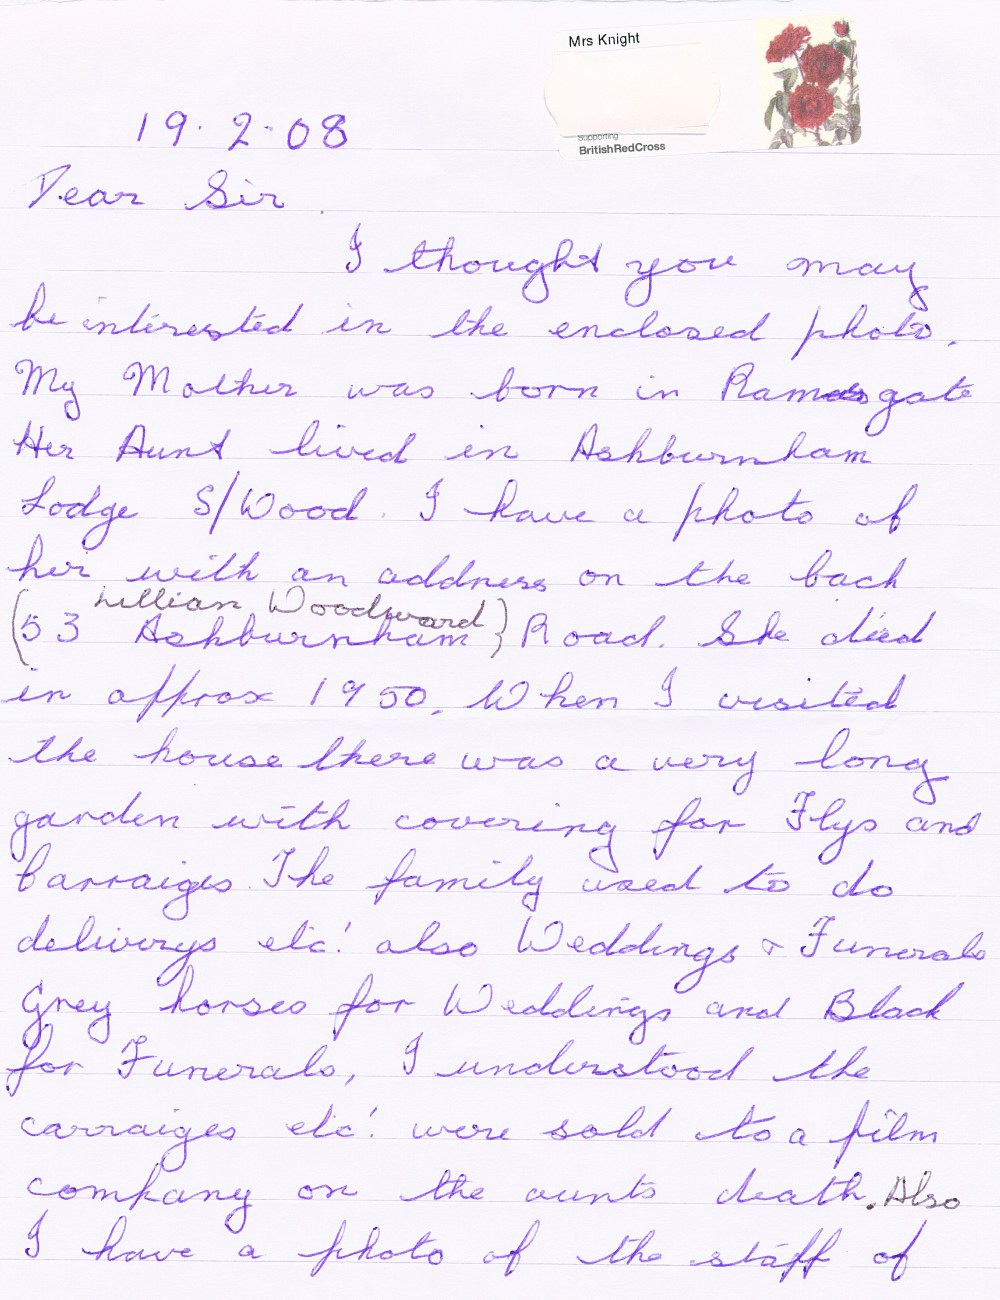 Mrs Knight
Supporting
BritishRedCross
19.2.08
Dear Sir.
I thought you may
be interested in the enclosed photo.
My Mother was born in Ramsgate
Her Aunt lived in Ashburnham
Lodge S/Wood. I have a photo of
her with an address on the back
(Lillian Woodward)
53 Ashburnham Road. She died
in approx 1950. When I visited
the house there was a very long
garden with covering for Flys and
Carraiges. The family used to do
deliverys etc! also Weddings & Funerals
Grey horses for Weddings and Black
for Funerals, I understood the
carraiges etc! were sold to a film
company on the aunts death. Also
I have a photo of the staff of